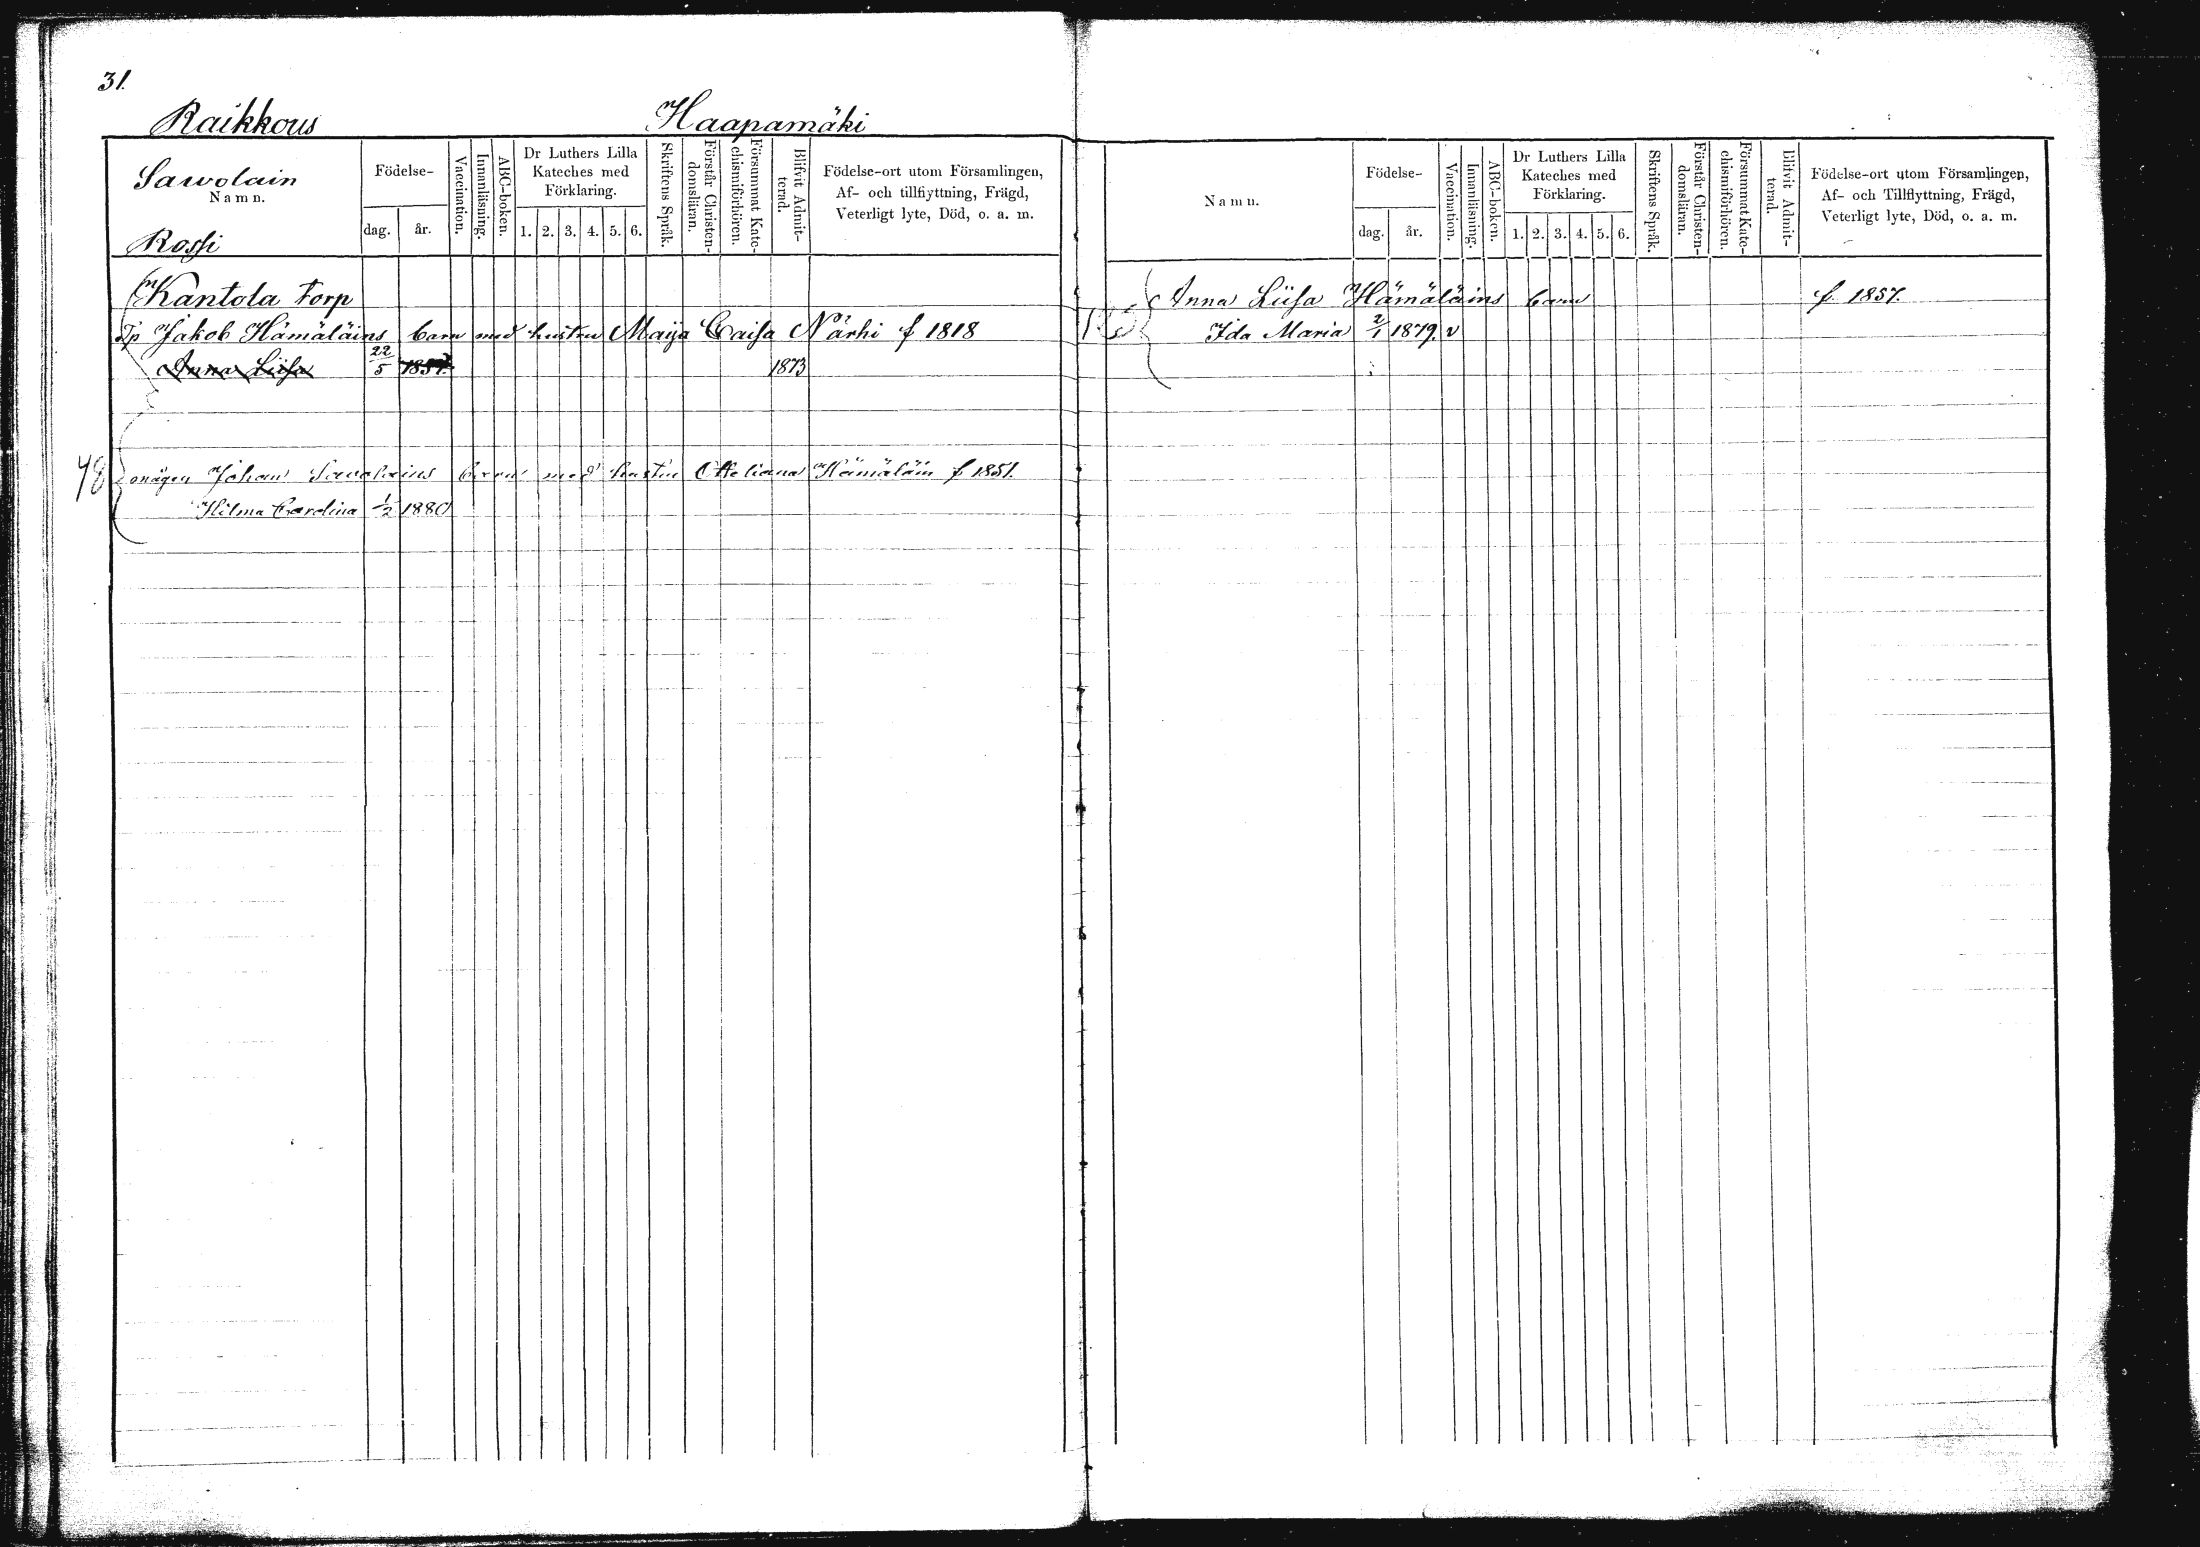 31.
Raikkous Haapamäki
Sawolain
Namn.
Rossi
Födelse-
dag. år.
Vaccination.
Innanläsning.
ABC-boken.
Dr Luthers Lilla
Kateches med
Förklaring.
1. 2. 3. 4. 5. 6.
Skriftens Språk.
Förstår Christen-
domsläran.
Försummat Kate-
chismiförhören.
Blifvit Admit-
terad.
Födelse-ort utom Församlingen,
Af- och tillflyttning, Frägd,
Veterligt lyte, Död, o. a. m.
Kantola torp
Tp Jakob Hämäläins barn med hustru Maija Caisa Närhi f 1818
Anna Liisa 22/5 1857. 1873
48 Johan Savolains barn med hustru Otteliana Hämäläin f 1851.
Hilma Carolina 1/2 1880
Namn.
Födelse-
dag. år.
Vaccination.
Innanläsning.
ABC-boken.
Dr Luthers Lilla
Kateches med
Förklaring.
1. 2. 3. 4. 5. 6.
Skriftens Språk.
Förstår Christen-
domsläran.
Försummat Kate-
chismiförhören.
Blifvit Admit-
terad.
Födelse-ort utom Församlingen,
Af- och Tillflyttning, Frägd,
Veterligt lyte, Död, o. a. m.
Anna Liisa Hämäläins barn f. 1857.
Ida Maria 2/1 1879. v